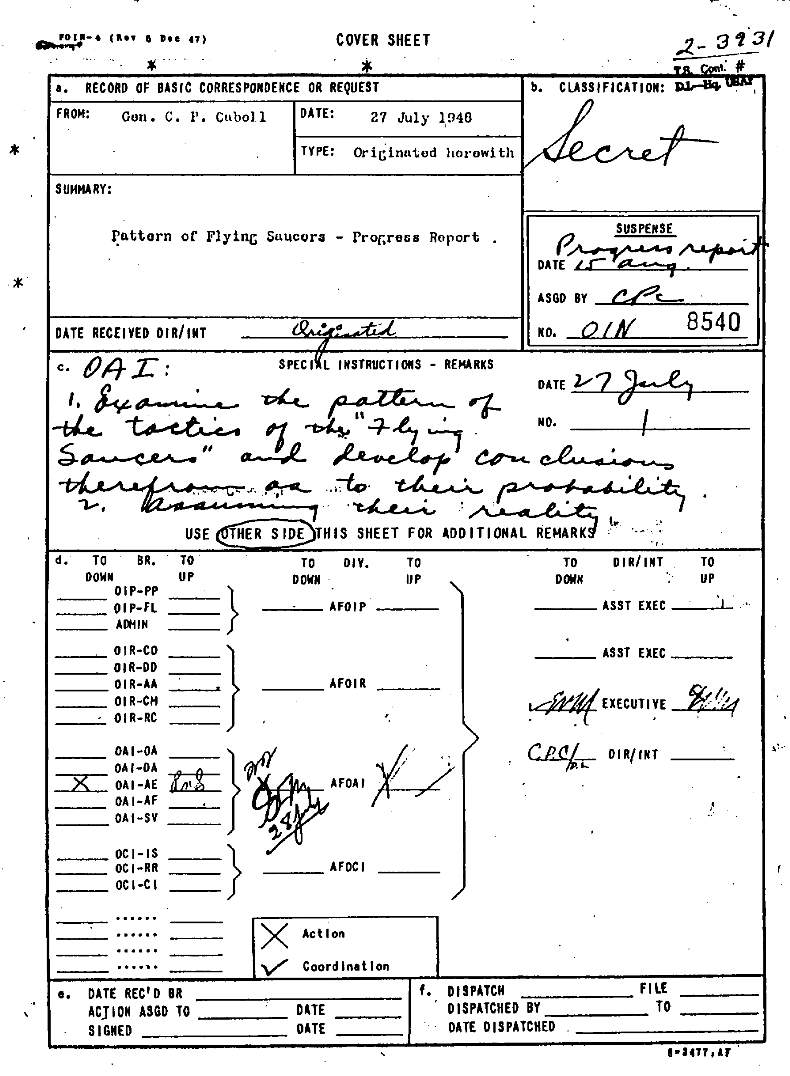 (Rev 6 Dec 47)
COVER SHEET
2-3931
T.S. Cont. #
* *
a. RECORD OF BASIC CORRESPONDENCE OR REQUEST
b. CLASSIFICATION:
FROM: Gen. C. P. Cabell
DATE: 27 July 1948
TYPE: Originated herewith
Secret
*
SUMMARY:
Pattern of Flying Saucers - Progress Report .
SUSPENSE
Progress report
DATE 15 Aug.
ASGD BY CPC
NO. OIN 8540
*
DATE RECEIVED DIR/INT Originated
c. OAI:
SPECIAL INSTRUCTIONS - REMARKS
DATE 27 July
NO. 1
1. Examine the pattern of
the tactics of the "Flying
Saucers" and develop conclusions
therefrom as to their probability.
2. Assuming their reality,
USE OTHER SIDE THIS SHEET FOR ADDITIONAL REMARKS
d. TO BR. TO TO DIV. TO TO DIR/INT TO
DOWN UP DOWN UP DOWN UP
OIP-PP
OIP-FL AFOIP ASST EXEC
ADMIN
OIR-CO ASST EXEC
OIR-DD
OIR-AA AFOIR
OIR-CM EXECUTIVE
OIR-RC
OAI-OA C.P.C/ DIR/INT
OAI-DA
X OAI-AE AFOAI
OAI-AF
OAI-SV
28 July
OCI-IS
OCI-RR AFOCI
OCI-CI
......
X Action
......
......
✓ Coordination
......
e. DATE REC'D BR
ACTION ASGD TO DATE
SIGNED DATE
f. DISPATCH FILE
DISPATCHED BY TO
DATE DISPATCHED
8-3477,AF